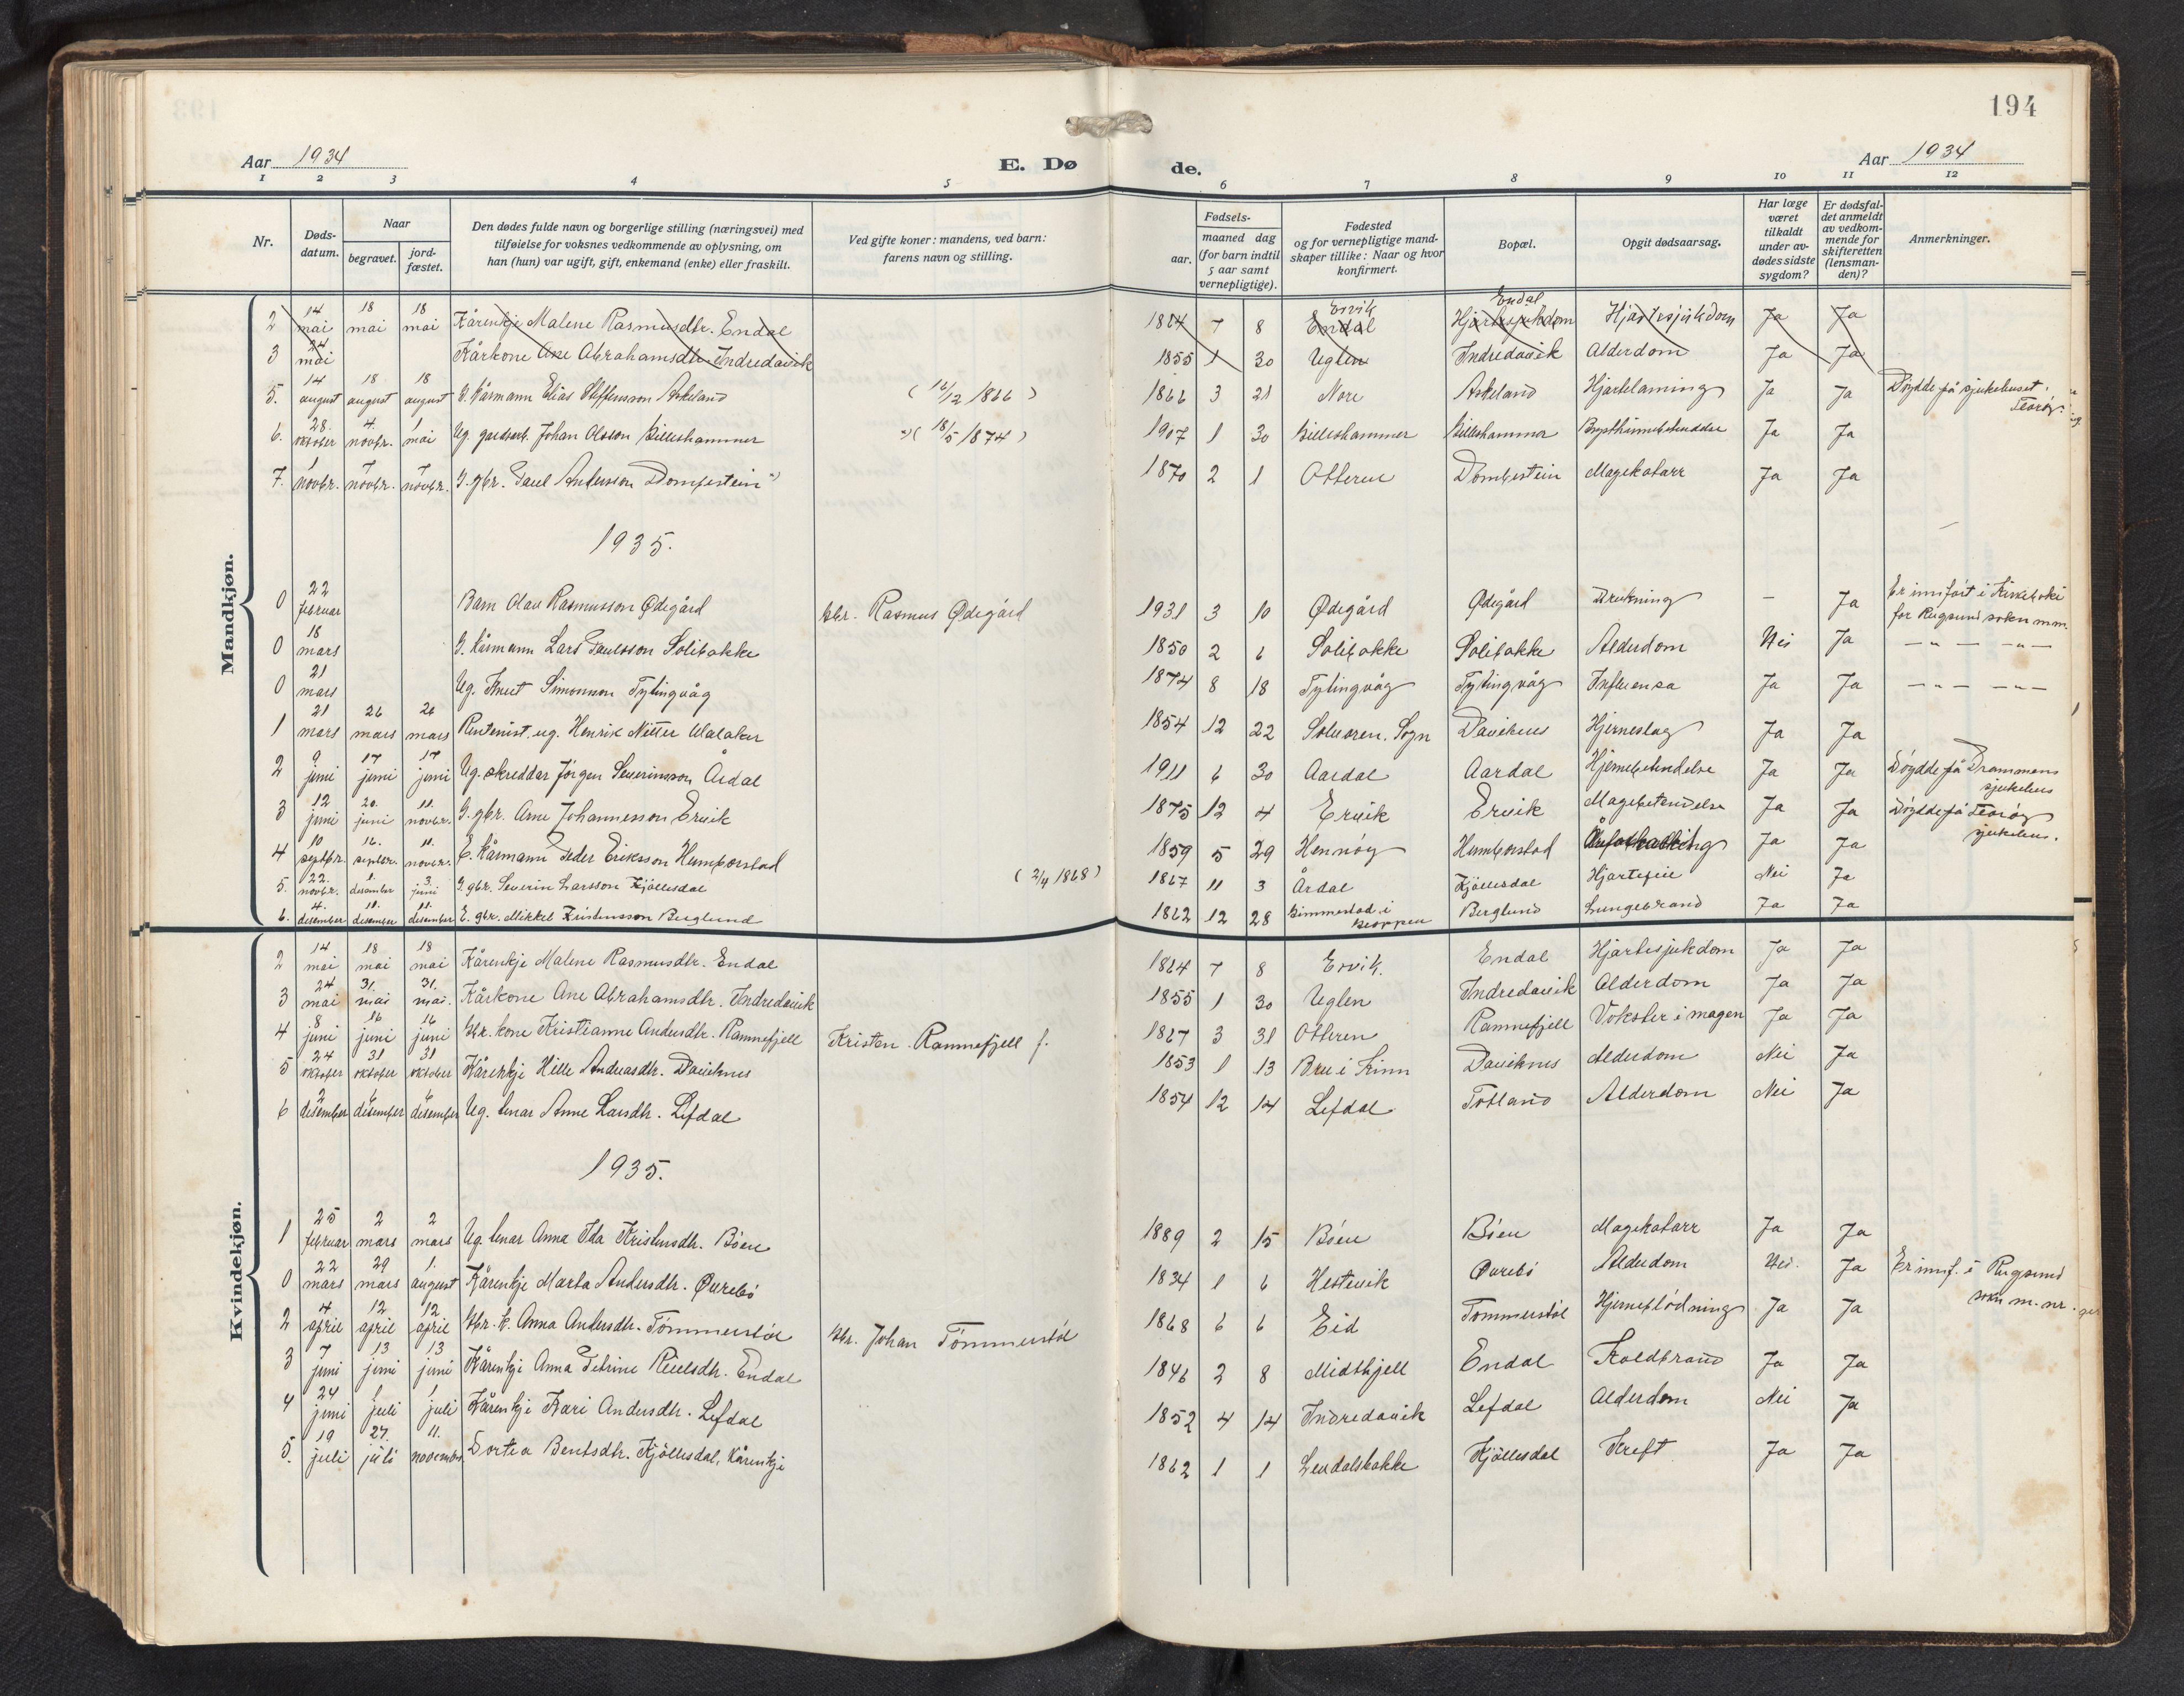 194
Aar 1934 E. Dø de. Aar 1934
1 2 3 4 5 6 7 8 9 10 11 12
Nr. Døds-datum. Naar begravet. jord-fæstet. Den dødes fulde navn og borgerlige stilling (næringsvei) med tilføielse for voksnes vedkommende av oplysning, om han (hun) var ugift, gift, enkemand (enke) eller fraskilt. Ved gifte koner: mandens, ved barn: farens navn og stilling. Fødsels- aar. maaned dag (for barn indtil 5 aar samt vernepligtige). Fødested og for vernepligtige mandskaper tillike: Naar og hvor konfirmert. Bopæl. Opgit dødsaarsag. Har læge været tilkaldt under avdødes sidste sygdom? Er dødsfaldet anmeldt av vedkommende for skifteretten (lensmanden)? Anmerkninger.
Mandkjøn.
2 14 mai 18 mai 18 mai Kårenkje Malene Rasmusdtr. Endal 1864 7 8 Endal Ervik Hjartesjukdom Endal Hjartesjukdom Ja Ja
3 24 mai Kårkone Ane Abrahamsdtr. Indredavik 1855 1 30 Uglen Indredavik Alderdom Ja Ja
5. 14 august 18 august 18 august G. kårmann Elias Steffensson Askeland (16/12 1866) 1866 3 21 Nore Askeland Hjartelaming Ja Ja Döydde på sjukehuset. Florøy.
6. 28. oktober 4. novbr. 1 mai Ug. gardsarb. Johan Olsson Billeshammer x) (18/5 1874) 1907 1 30 Billeshammer Billeshammer Brysthinnebetendelse Ja Ja
7. 1 novbr. 7 novbr. 7 novbr. G. gbr. Paul Andersson Dombestein x) 1870 2 1 Otteren Dombestein Magekatarr Ja Ja
1935.
0 22 februar Barn Olav Rasmusson Ødegård gbr. Rasmus Ødegård 1931 3 10 Ødegård Ødegård Drukning – Ja Er innført i Kirkeboki for Rugsund sokn m.m.
0 18 mars G. kårmann Lars Paulsson Solibakke 1850 2 6 Solibakke Solibakke Alderdom Nei Ja — " — — " —
0 21 mars Ug. Knut Simonson Tytingvåg 1874 8 18 Tytingvåg Tytingvåg Influensa Ja Ja — " — — " —
1 21 mars 26 mars 26 mars Rentenist, ug. Henrik Nitter Walaker 1854 12 22 Solvoren. Sogn Daviknes Hjerneslag Ja Ja
2 9 juni 17 juni 17 juni Ug. skreddar Jørgen Severinson Årdal 1911 6 30 Aardal Aardal Hjernebetendelse Ja Ja Döydde på Drammens sjukehus
3 12 juni 20. juni 11. novbr. G. gbr. Arne Johannesson Ervik 1875 12 4 Ervik Ervik Magebetendelse Ja Ja Döydde på Florøy sjukehus.
4 10 septbr. 16. septbr. 11. novbr. E. kårmann Peder Eriksson Humborstad 1859 5 29 Hennøy Humborstad Åreforkalking Ja Ja
5. 22. novbr. 1. desember 3. juni G. gbr. Severin Larsson Kjöllesdal (2/4 1868) 1867 11 3 Årdal Kjöllesdal Hjartefeil Nei Ja
6. 4. desember 11. desember 11. desember E. gbr. Mikkel Kristensson Berglund 1862 12 28 Gimmestad i Gloppen Berglund Lungebrand Ja Ja
Kvindekjøn.
2 14 mai 18 mai 18 mai Kårenkje Malene Rasmusdtr. Endal 1864 7 8 Ervik. Endal Hjartesjukdom Ja Ja
3 24 mai 31. mai 31. mai. Kårkone Ane Abrahamsdtr. Indredavik 1855 1 30 Uglen Indredavik Alderdom Ja Ja
4 8 juni 16 juni 16 juni Gbr. kone Kristianne Andersdtr. Ramnefjell Kristen Ramnefjell f. 1867 3 31 Otteren Ramnefjell Vokster i magen Ja Ja
5 24 oktober 31 oktober 31 oktober Kårenkje Hille Andreasdtr. Daviknes 1853 1 13 Bru i Kinn Daviknes Alderdom Nei Ja
6 2 desember 6 desember 6 desember Ug. lenar Anne Larsdtr. Lefdal 1854 12 14 Lefdal Totland Alderdom Nei Ja
1935.
1 25 februar 2 mars 2 mars Ug. lenar Anna Ida Kristensdtr. Böen 1889 2 15 Böen Böen Magekatarr Ja Ja
0 22 mars 29 mars 1. august Kårenkje Marta Andersdtr. Øvrebö 1834 1 6 Hestevik Øvrebö Alderdom Nei. Ja Er innf. i Rugsund sokn m. nr.
2 4 april 12 april 12 april Gbr. k. Anna Andersdtr. Tömmerstöl Gbr. Johan Tömmerstöl 1868 6 6 Eid Tömmerstöl Hjerneblödning Ja Ja
3 7 juni 13 juni 13 juni Kårenkje Anna Petrine Reielsdtr. Endal 1846 2 8 Midthjell Endal Koldbrand Ja Ja
4 24 juni 1 juli 1 juli Kårenkje Kari Andersdtr. Lefdal 1852 4 14 Indredavik Lefdal Alderdom Nei Ja
5. 19 juli 27. juli 11. november Dortea Bentsdtr. Kjöllesdal, kårenkje 1862 1 1 Levdalsbakke Kjöllesdal Kreft Ja Ja